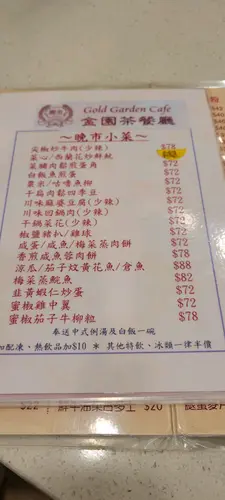 Gold Garden Cafe
金園茶餐廳
～晚市小菜～
尖椒炒牛肉(少辣) $78
菜心/西蘭花炒鮮魷
菜脯肉鬆煎蛋角 $72
白飯魚煎蛋 $72
粟米/咕嚕魚柳 $72
干扁肉鬆四季豆 $72
川味麻婆豆腐(少辣) $72
川味回鍋肉(少辣) $72
干鍋菜花(少辣) $72
椒鹽豬扒/雞球 $72
咸蛋/咸魚/梅菜蒸肉餅 $72
香煎咸魚蓉肉餅 $78
涼瓜/茄子炆黃花魚/倉魚 $88
梅菜蒸鯇魚 $82
韭黃蝦仁炒蛋 $72
蜜椒雞中翼 $72
蜜椒茄子牛柳粒 $78
奉送中式例湯及白飯一碗
加配凍、熱飲品加$10 * 其他特飲、冰類一律半價
$22
$20